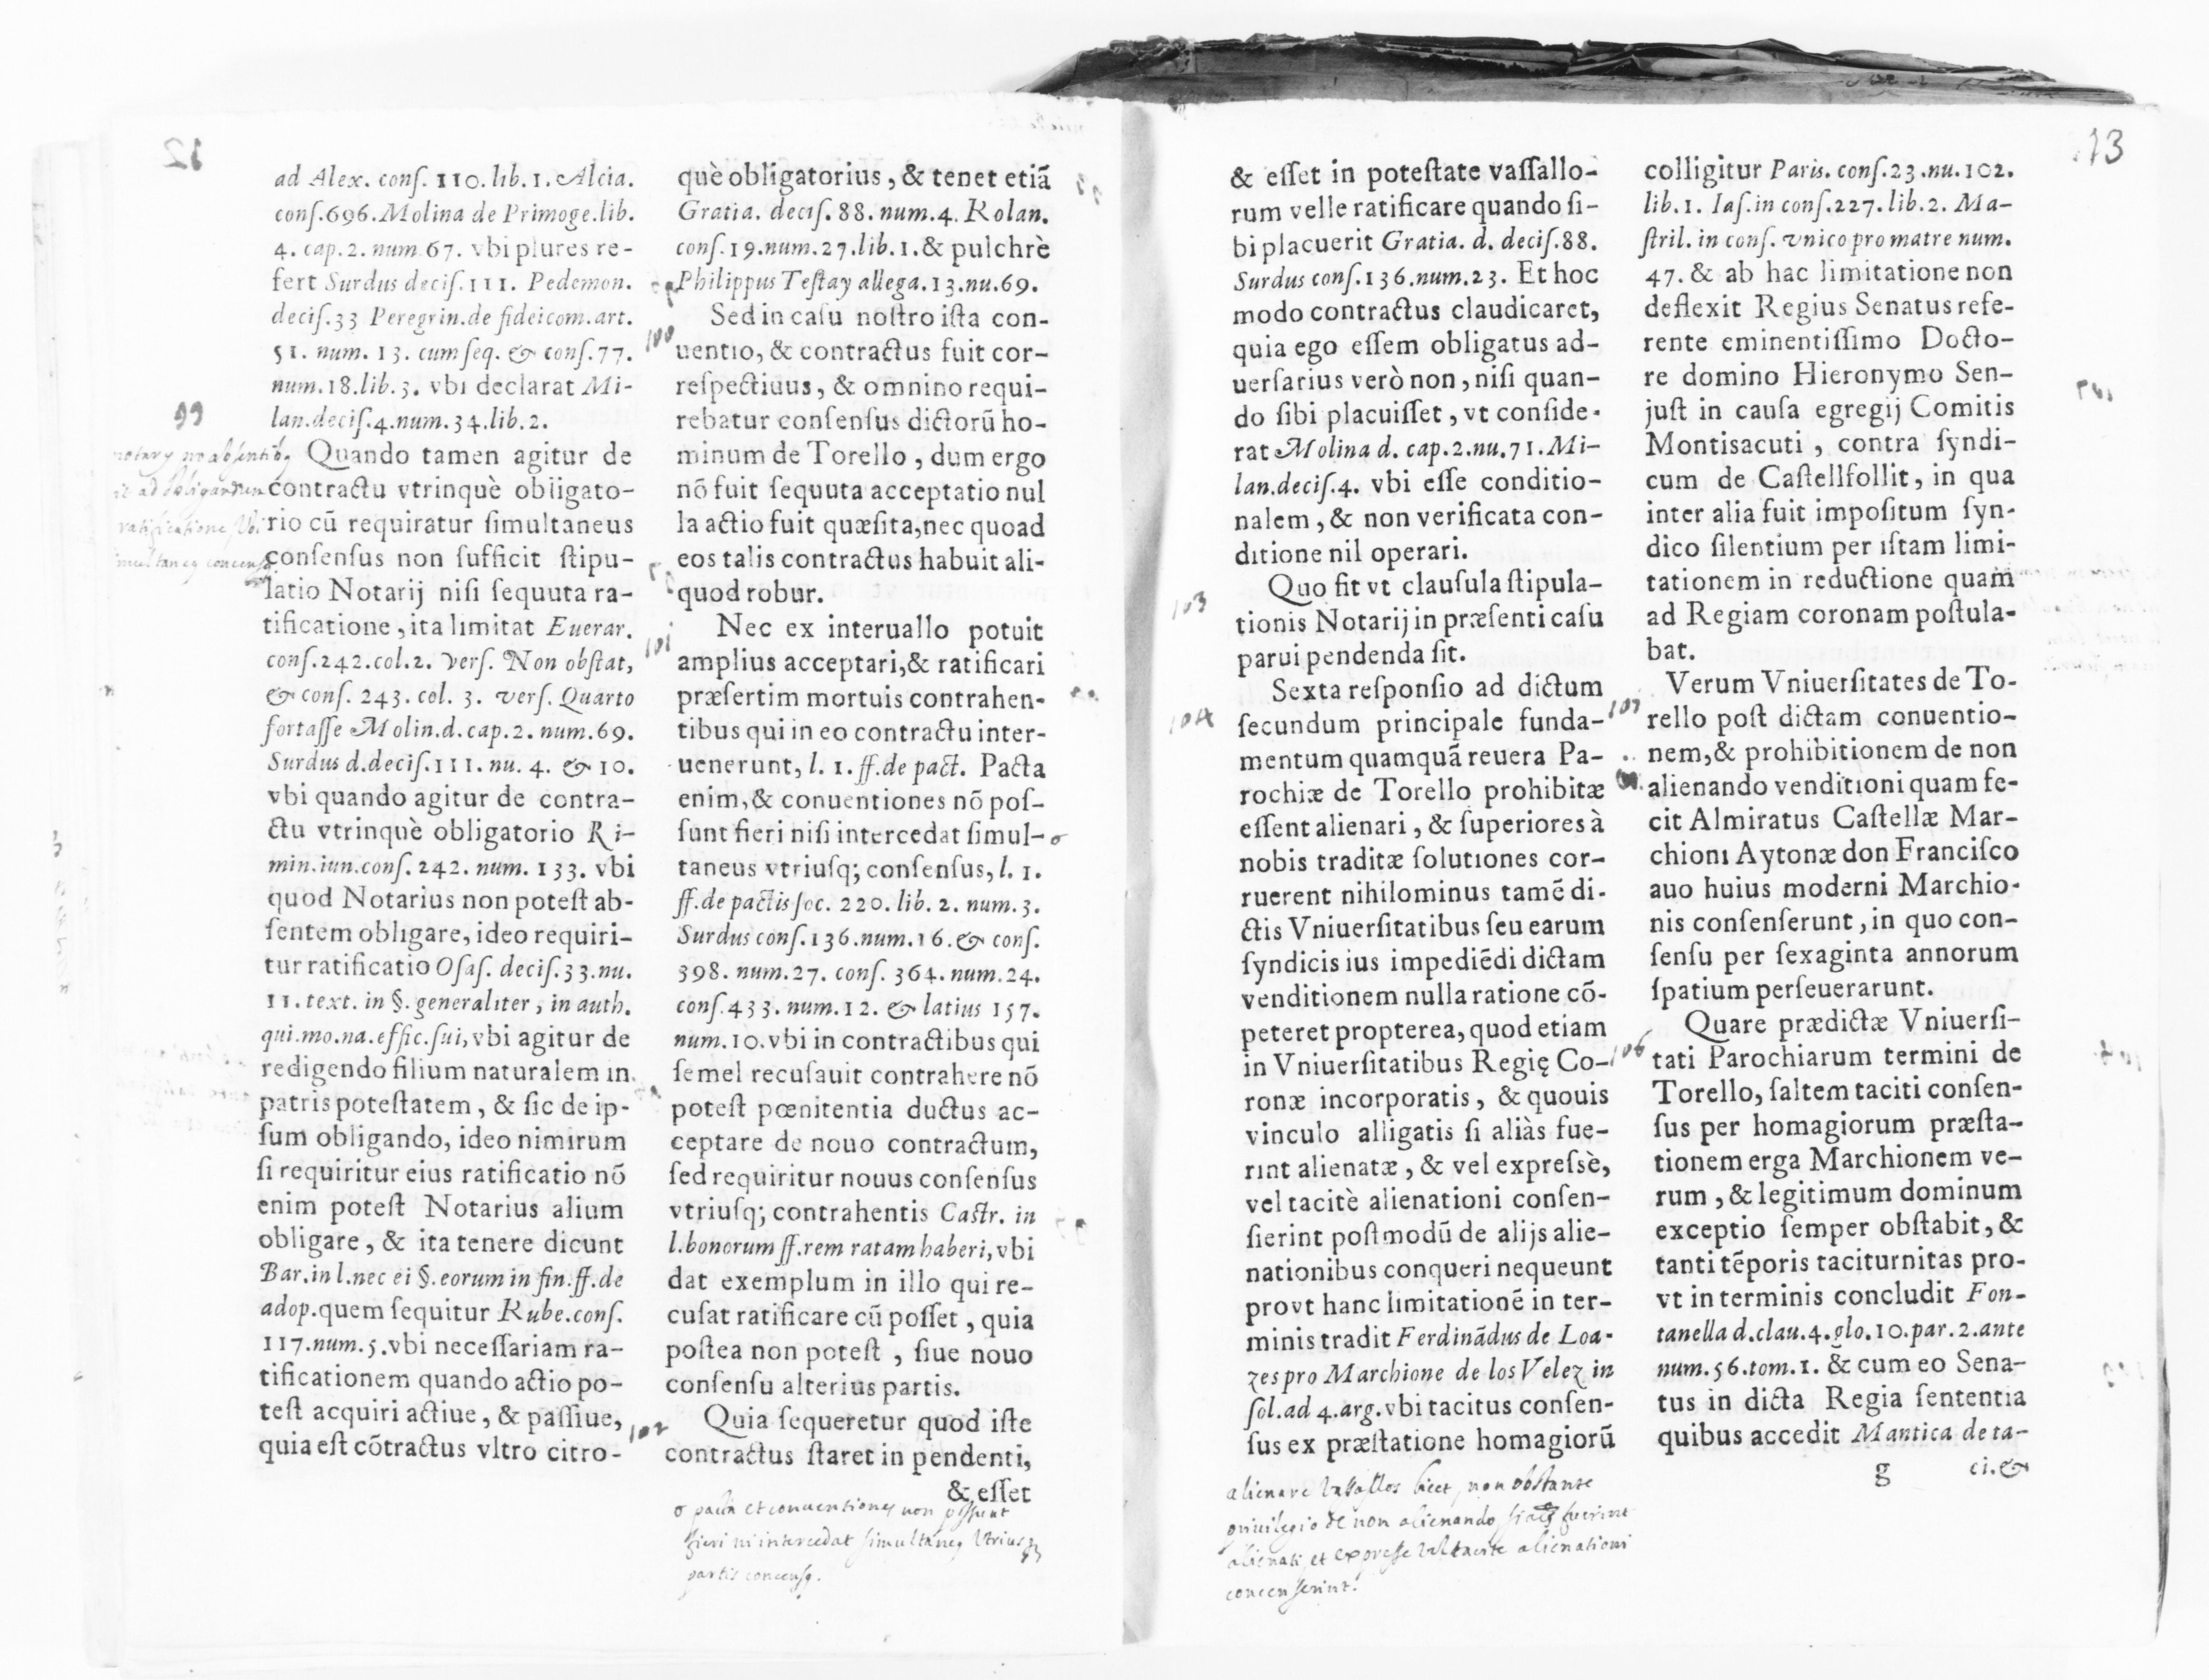 ad Alex. conſ. 110. lib. 1. Alcia.
conſ.696. Molina de Primoge.lib.
4. cap.2. num.67. vbi plures re-
fert Surdus deciſ.111. Pedemon.
deciſ.33 Peregrin.de fideicom.art.
51. num. 13. cum ſeq. & conſ.77.
num.18.lib.3. vbi declarat Mi-
lan.deciſ.4.num.34.lib.2.
99
Quando tamen agitur de
contractu vtrinquè obligato-
rio cũ requiratur ſimultaneus
conſenſus non ſufficit ſtipu-
latio Notarij niſi ſequuta ra-
tificatione, ita limitat Euerar.
conſ.242.col.2. verſ. Non obſtat,
& conſ. 243. col. 3. verſ. Quarto
fortaſſe Molin.d.cap.2. num.69.
Surdus d.deciſ.111.nu. 4. & 10.
vbi quando agitur de contra-
ctu vtrinquè obligatorio Ri-
min.iun.conſ.242. num. 133. vbi
quod Notarius non poteſt ab-
ſentem obligare, ideo requiri-
tur ratificatio Oſaſ. deciſ.33.nu.
11. text. in §. generaliter, in auth.
qui.mo.na.effic.ſui, vbi agitur de
redigendo filium naturalem in
patris poteſtatem, & ſic de ip-
ſum obligando, ideo nimirum
ſi requiritur eius ratificatio nõ
enim poteſt Notarius alium
obligare, & ita tenere dicunt
Bar.in l.nec ei §.eorum in fin.ff.de
adop.quem ſequitur Rube.conſ.
117.num.5.vbi neceſſariam ra-
tificationem quando actio po-
teſt acquiri actiue, & paſſiue,
quia eſt cõtractus vltro citro-
què obligatorius, & tenet etiã
Gratia. deciſ. 88. num.4. Rolan.
conſ.19.num.27.lib.1.& pulchrè
Philippus Teſtay allega.13.nu.69.
100
Sed in caſu noſtro iſta con-
uentio, & contractus fuit cor-
reſpectiuus, & omnino requi-
rebatur conſenſus dictorũ ho-
minum de Torello, dum ergo
nõ fuit ſequuta acceptatio nul
la actio fuit quæſita,nec quoad
eos talis contractus habuit ali-
quod robur.
101
Nec ex interuallo potuit
amplius acceptari,& ratificari
præſertim mortuis contrahen-
tibus qui in eo contractu inter-
uenerunt, l. 1. ff.de pact. Pacta
enim,& conuentiones nõ poſ-
ſunt fieri niſi intercedat ſimul-
taneus vtriuſq; conſenſus, l. 1.
ff.de pactis ſoc. 220. lib. 2. num.3.
Surdus conſ.136.num.16.& conſ.
398. num.27. conſ. 364. num.24.
conſ.433. num.12. & latius 157.
num.10.vbi in contractibus qui
ſemel recuſauit contrahere nõ
poteſt pœnitentia ductus ac-
ceptare de nouo contractum,
ſed requiritur nouus conſenſus
vtriuſq; contrahentis Caſtr. in
l.bonorum ff.rem ratam haberi, vbi
dat exemplum in illo qui re-
cuſat ratificare cũ poſſet, quia
poſtea non poteſt, ſiue nouo
conſenſu alterius partis.
102
Quia ſequeretur quod iſte
contractus ſtaret in pendenti,
& eſſet
o pacta et conuentiones non possunt
fieri ni intercedat simultaneq utriusq
partis concensq.
13
& eſſet in poteſtate vaſſallo-
rum velle ratificare quando ſi-
bi placuerit Gratia. d. deciſ.88.
Surdus conſ.136.num.23. Et hoc
modo contractus claudicaret,
quia ego eſſem obligatus ad-
uerſarius verò non, niſi quan-
do ſibi placuiſſet, vt conſide-
rat Molina d. cap.2.nu.71. Mi-
lan.deciſ.4. vbi eſſe conditio-
nalem, & non verificata con-
ditione nil operari.
103
Quo fit vt clauſula ſtipula-
tionis Notarij in præſenti caſu
parui pendenda ſit.
104
Sexta reſponſio ad dictum
ſecundum principale funda-
mentum quamquã reuera Pa-
rochiæ de Torello prohibitæ
eſſent alienari, & ſuperiores à
nobis traditæ ſolutiones cor-
ruerent nihilominus tamẽ di-
ctis Vniuerſitatibus ſeu earum
ſyndicis ius impediẽdi dictam
venditionem nulla ratione cõ-
peteret propterea, quod etiam
in Vniuerſitatibus Regię Co-
ronæ incorporatis, & quouis
vinculo alligatis ſi aliàs fue-
rint alienatæ, & vel expreſsè,
vel tacitè alienationi conſen-
ſierint poſtmodũ de alijs alie-
nationibus conqueri nequeunt
provt hanc limitationẽ in ter-
minis tradit Ferdinãdus de Loa-
zes pro Marchione de los Velez in
ſol.ad 4.arg.vbi tacitus conſen-
ſus ex præſtatione homagiorũ
alienare vassallos licet, non obstante
priuilegio de non alienando si als fuerint
alienati, et expresse vel tacite alienationi
concenserint.
colligitur Paris. conſ.23.nu.102.
lib.1. Iaſ.in conſ.227.lib.2. Ma-
ſtril. in conſ. vnico pro matre num.
47. & ab hac limitatione non
deflexit Regius Senatus refe-
rente eminentiſſimo Docto-
re domino Hieronymo Sen-
juſt in cauſa egregij Comitis
Montisacuti, contra ſyndi-
cum de Caſtellfollit, in qua
inter alia fuit impoſitum ſyn-
dico ſilentium per iſtam limi-
tationem in reductione quam
ad Regiam coronam poſtula-
bat.
Verum Vniuerſitates de To-
rello poſt dictam conuentio-
nem,& prohibitionem de non
alienando venditioni quam fe-
cit Almiratus Caſtellæ Mar-
chioni Aytonæ don Franciſco
auo huius moderni Marchio-
nis conſenſerunt, in quo con-
ſenſu per ſexaginta annorum
ſpatium perſeuerarunt.
106
Quare prædictæ Vniuerſi-
tati Parochiarum termini de
Torello, ſaltem taciti conſen-
ſus per homagiorum præſta-
tionem erga Marchionem ve-
rum, & legitimum dominum
exceptio ſemper obſtabit, &
tanti tẽporis taciturnitas pro-
vt in terminis concludit Fon-
tanella d.clau.4.glo.10.par.2.ante
num.56.tom.1. & cum eo Sena-
tus in dicta Regia ſententia
quibus accedit Mantica de ta-
g ci.&